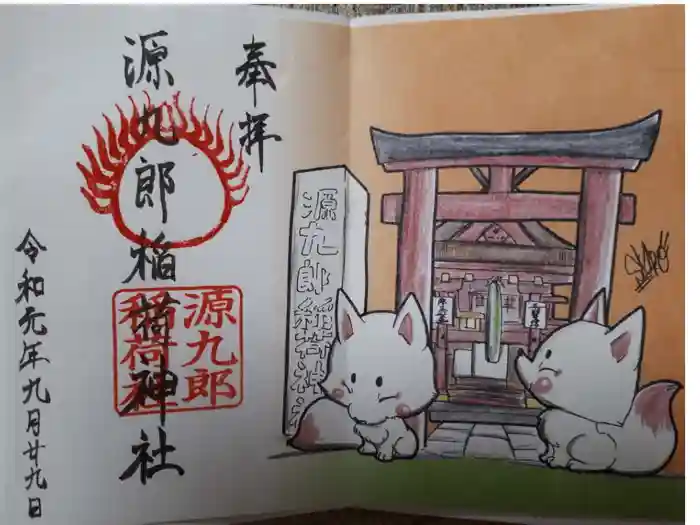 奉拝
源九郎稲荷神社
源九郎
稲荷社
令和元年九月廿九日
源九郎稲荷神社